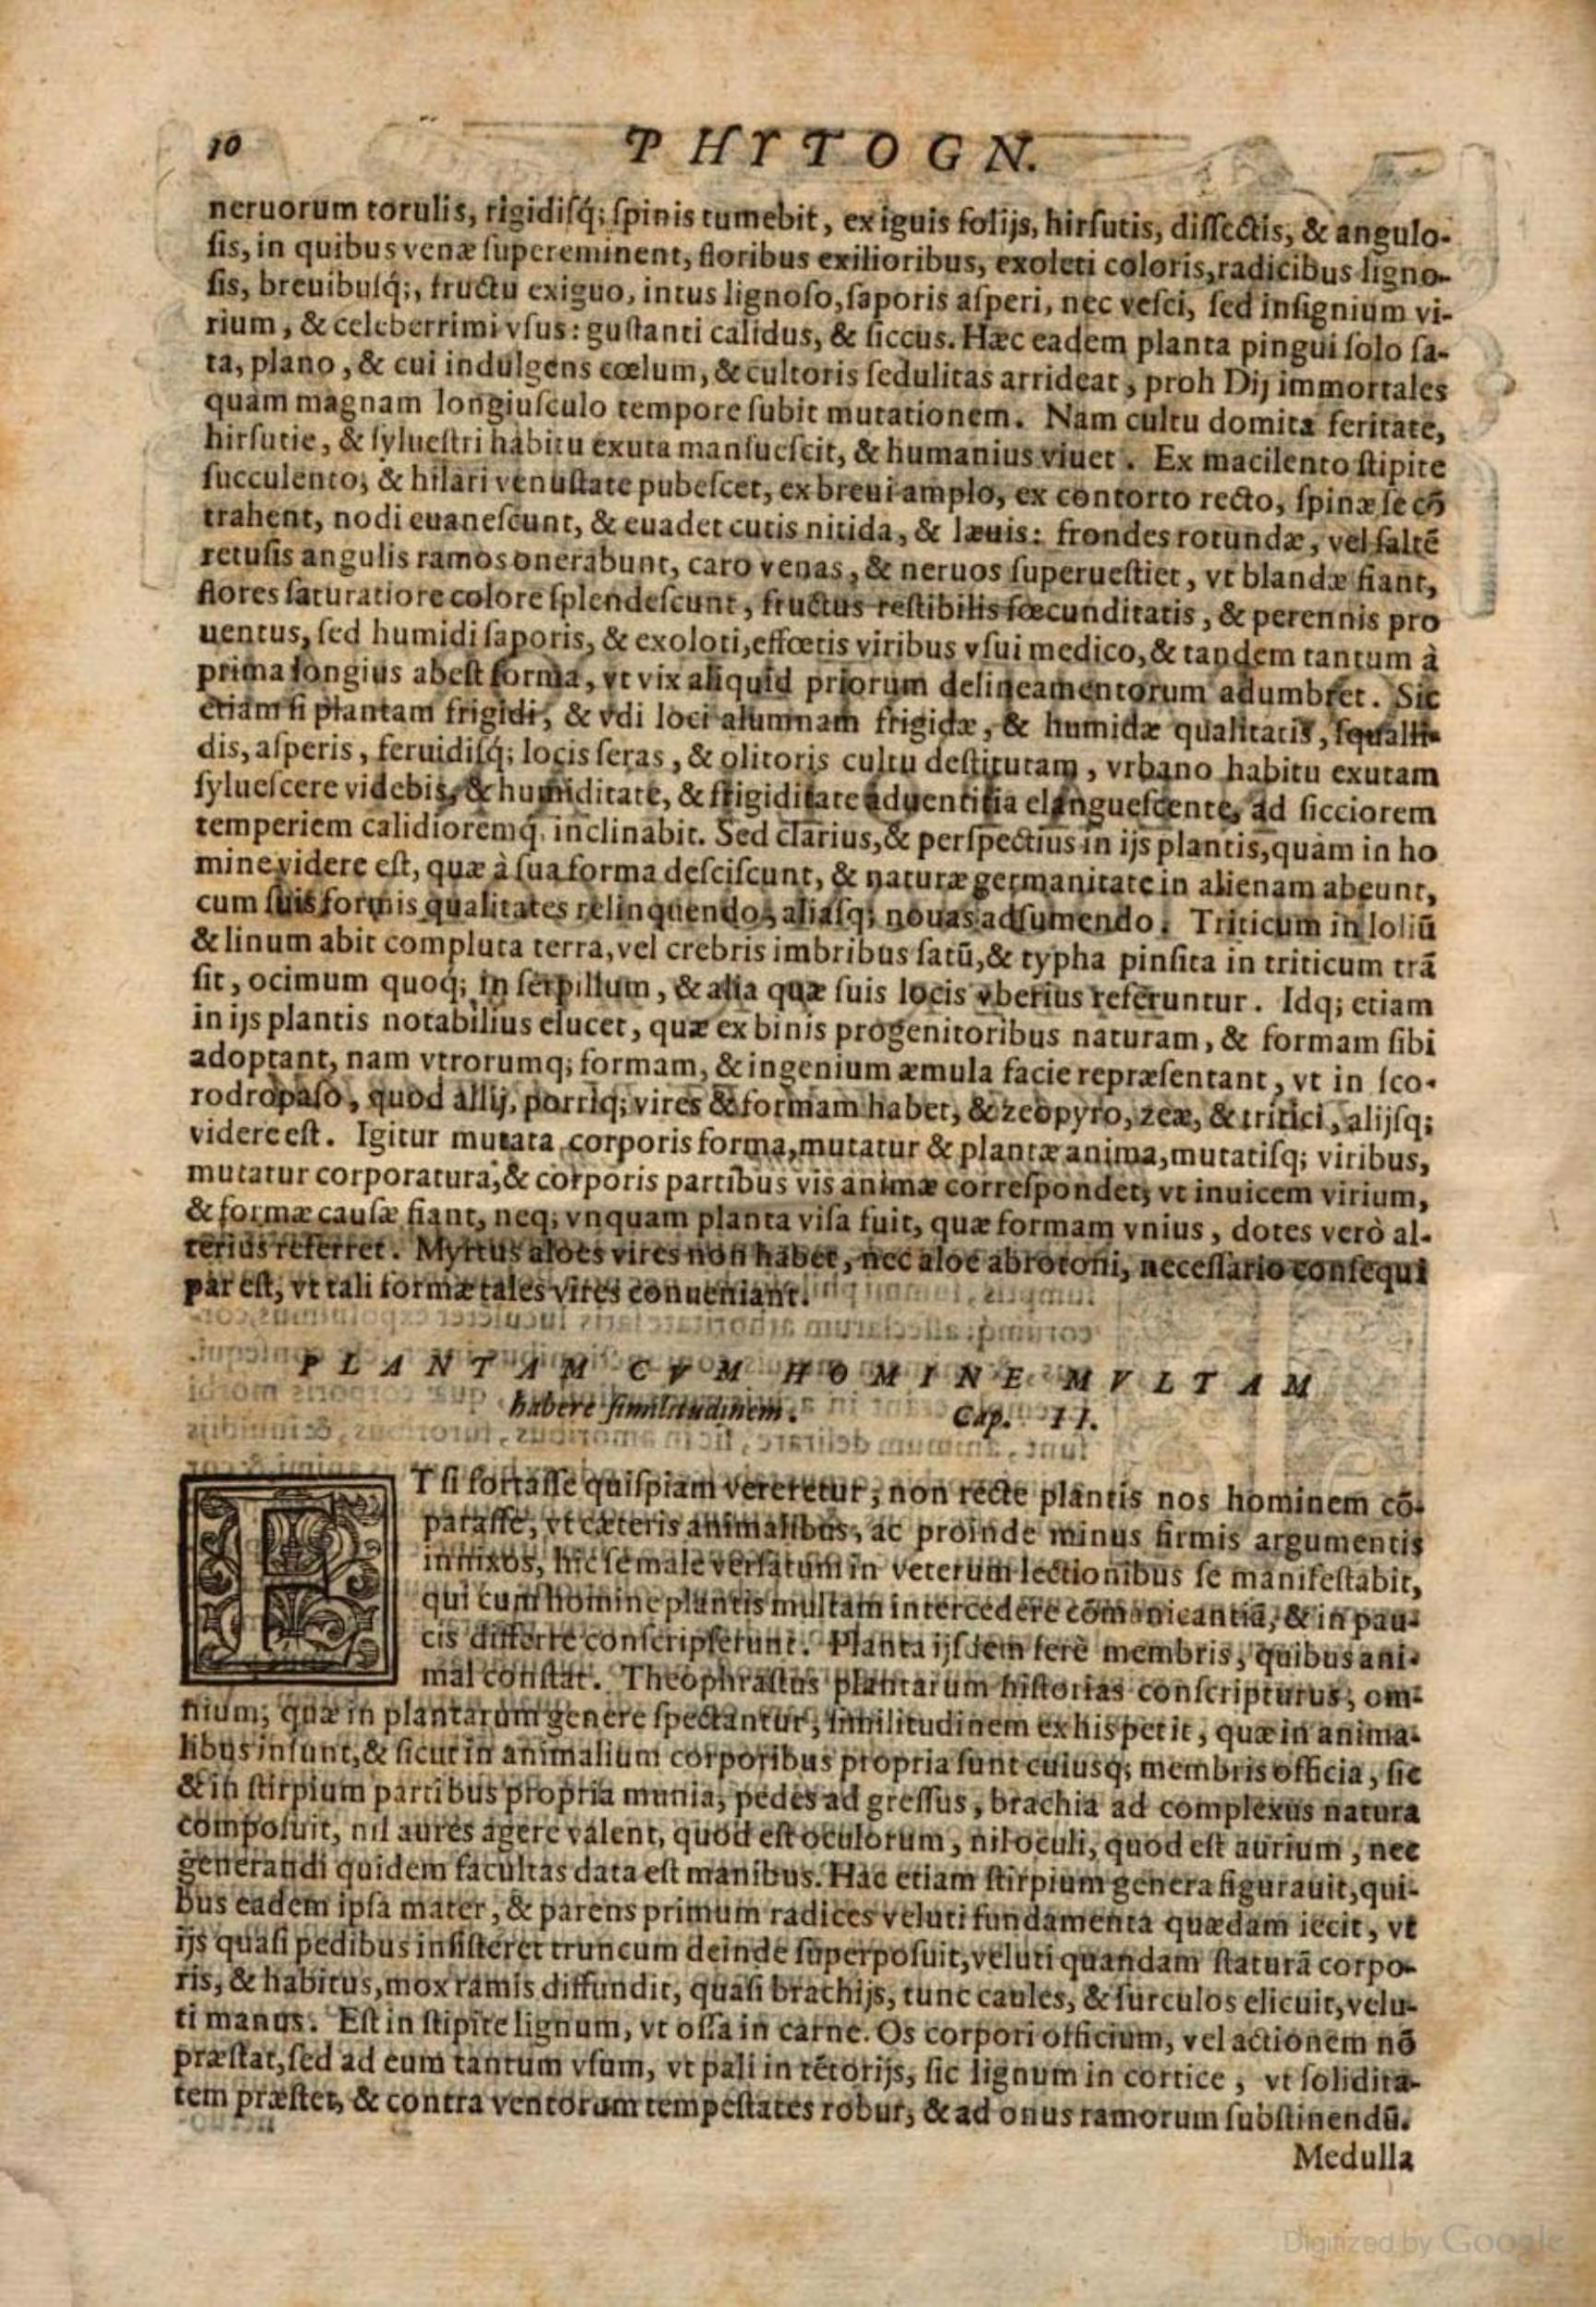 10 PHYTOGN.
neruorum torulis, rigidiſq́; ſpinis tumebit, exiguis folijs, hirſutis, diſſectis, & angulo-
ſis, in quibus venæ ſupereminent, floribus exilioribus, exoleti coloris, radicibus ligno-
ſis, breuibuſq́;, fructu exiguo, intus lignoſo, ſaporis aſperi, nec veſci, ſed inſignium vi-
rium, & celeberrimi vſus: guſtanti calidus, & ſiccus. Hæc eadem planta pingui ſolo ſa-
ta, plano, & cui indulgens cœlum, & cultoris ſedulitas arrideat, proh Dij immortales
quàm magnam longiuſculo tempore ſubit mutationem. Nam cultu domita feritate,
hirſutie, & ſylueſtri habitu exuta manſueſcit, & humanius viuet. Ex macilento ſtipite
ſucculento, & hilari venuſtate pubeſcet, ex breui amplo, ex contorto recto, ſpinæ ſe cō
trahent, nodi euaneſcunt, & euadet cutis nitida, & læuis: frondes rotundæ, vel ſaltē
retuſis angulis ramos onerabunt, caro venas, & neruos ſuperueſtiet, vt blandæ fiant,
flores ſaturatiore colore ſplendeſcunt, fructus reſtibilis fœcunditatis, & perennis pro
uentus, ſed humidi ſaporis, & exoloti, effœtis viribus vſui medico, & tandem tantum à
prima longius abeſt forma, vt vix aliquid priorum delineamentorum adumbret. Sic
etiam ſi plantam frigidi, & vdi loci alumnam frigidæ, & humidæ qualitatis, ſqualli-
dis, aſperis, feruidiſq́; locis ſeras, & olitoris cultu deſtitutam, vrbano habitu exutam
ſylueſcere videbis, & humiditate, & frigiditate aduentitia elangueſcente, ad ſicciorem
temperiem calidioremq́, inclinabit. Sed clarius, & perſpectius in ijs plantis, quàm in ho
mine videre eſt, quæ à ſua forma deſciſcunt, & naturæ germanitate in alienam abeunt,
cum ſuis formis qualitates relinquendo, aliaſq; nouas adſumendo. Triticum in loliū
& linum abit compluta terra, vel crebris imbribus ſatū, & typha pinſita in triticum trā
ſit, ocimum quoq́; in ſerpillum, & alia quæ ſuis locis vberius referuntur. Idq; etiam
in ijs plantis notabilius elucet, quæ ex binis progenitoribus naturam, & formam ſibi
adoptant, nam vtrorumq; formam, & ingenium æmula facie repræſentant, vt in ſco-
rodropaſo, quod allij, porriq; vires & formam habet, & zeopyro, zeæ, & tritici, alijſq;
videre eſt. Igitur mutata corporis forma, mutatur & plantæ anima, mutatiſq; viribus,
mutatur corporatura, & corporis partibus vis animæ correſpondet, vt inuicem virium,
& formæ cauſæ fiant, neq; vnquam planta viſa fuit, quæ formam vnius, dotes verò al-
terius referret. Myrtus aloes vires non habet, nec aloe abrotoni, neceſſario conſequi
par eſt, vt tali formæ tales vires conueniant.
PLANTAM CVM HOMINE MVLTAM
habere ſimilitudinem. Cap. II.
ET ſi fortaſſe quiſpiam vereretur, non rectè plantis nos hominem cō-
paraſſe, vt cæteris animalibus, ac proinde minus firmis argumentis
innixos, hic ſe male verſatum in veterum lectionibus ſe manifeſtabit,
qui cum homine plantis multam intercedere cōmunicantiā, & in pau-
cis differre conſcripſerunt. Planta ijſdem ferè membris, quibus ani-
mal conſtat. Theophraſtus plantarum hiſtorias conſcripturus, om-
nium, quæ in plantarum genere ſpectantur, ſimilitudinem ex his petit, quæ in anima-
libus inſunt, & ſicut in animalium corporibus propria ſunt cuiusq; membris officia, ſic
& in ſtirpium partibus propria munia, pedes ad greſſus, brachia ad complexus natura
compoſuit, nil aures agere valent, quod eſt oculorum, nil oculi, quod eſt aurium, nec
generandi quidem facultas data eſt manibus. Hac etiam ſtirpium genera figurauit, qui-
bus eadem ipſa mater, & parens primum radices veluti fundamenta quædam iecit, vt
ijs quaſi pedibus inſiſteret truncum deinde ſuperpoſuit, veluti quandam ſtaturā corpo-
ris, & habitus, mox ramis diffundit, quaſi brachijs, tunc caules, & ſurculos elicuit, velu-
ti manus. Eſt in ſtipite lignum, vt oſſa in carne. Os corpori officium, vel actionem nō
præſtat, ſed ad eum tantum vſum, vt pali in tētorijs, ſic lignum in cortice, vt ſolidita-
tem præſtet, & contra ventorum tempeſtates robur, & ad onus ramorum ſubſtinendū.
Medulla
Digitized by Google